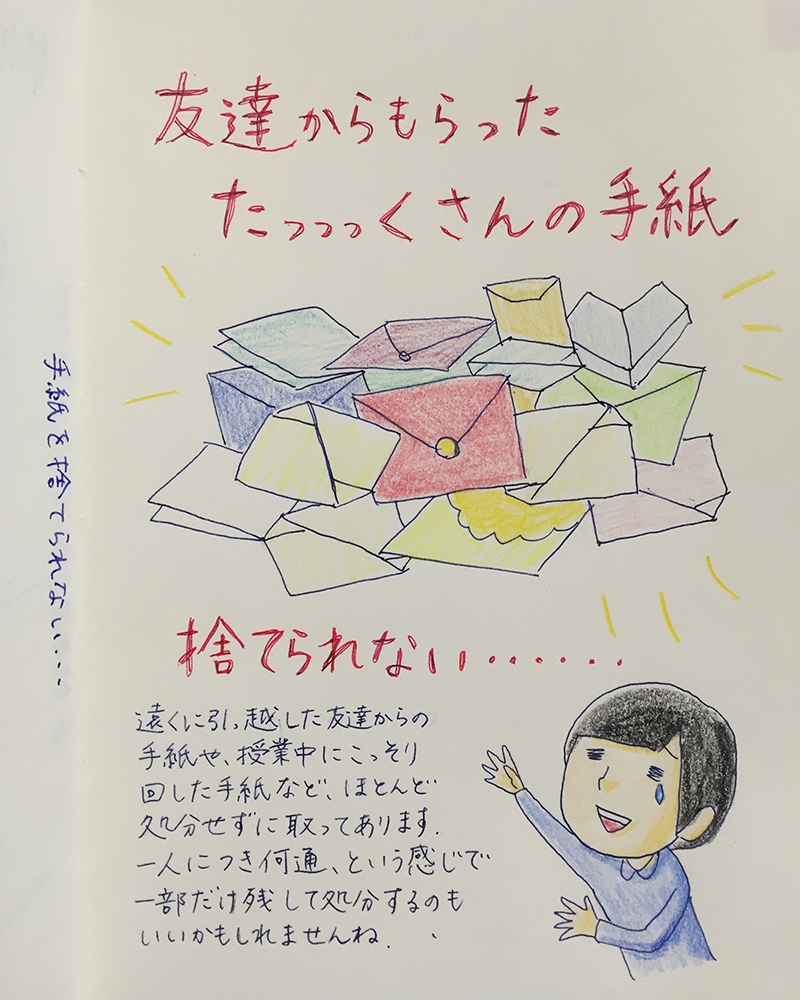 友達からもらった
たっっっくさんの手紙
捨てられない・・・・・・・
遠くに引っ越した友達からの
手紙や、授業中にこっそり
回した手紙など、ほとんど
処分せずに取ってあります.
一人につき何通、という感じで
一部だけ残して処分するのも
いいかもしれませんね.
手紙を捨てられない・・・